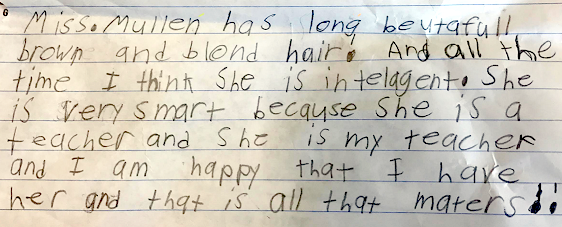 Miss. Mullen has long beutafull
brown and blond hair. And all the
time I think She is intelagent. She
is very smart because She is a
teacher and She is my teacher
and I am happy that I have
her and that is all that maters!!